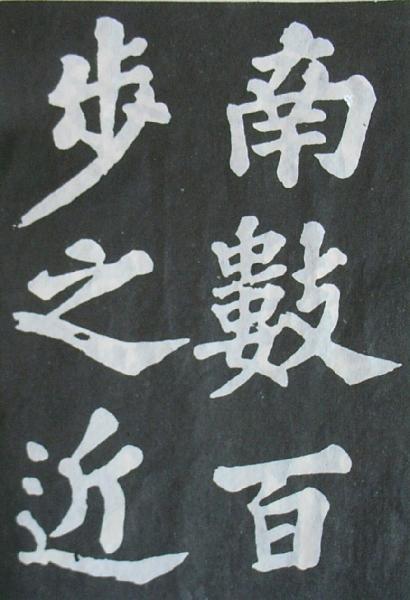 南數百
步之近